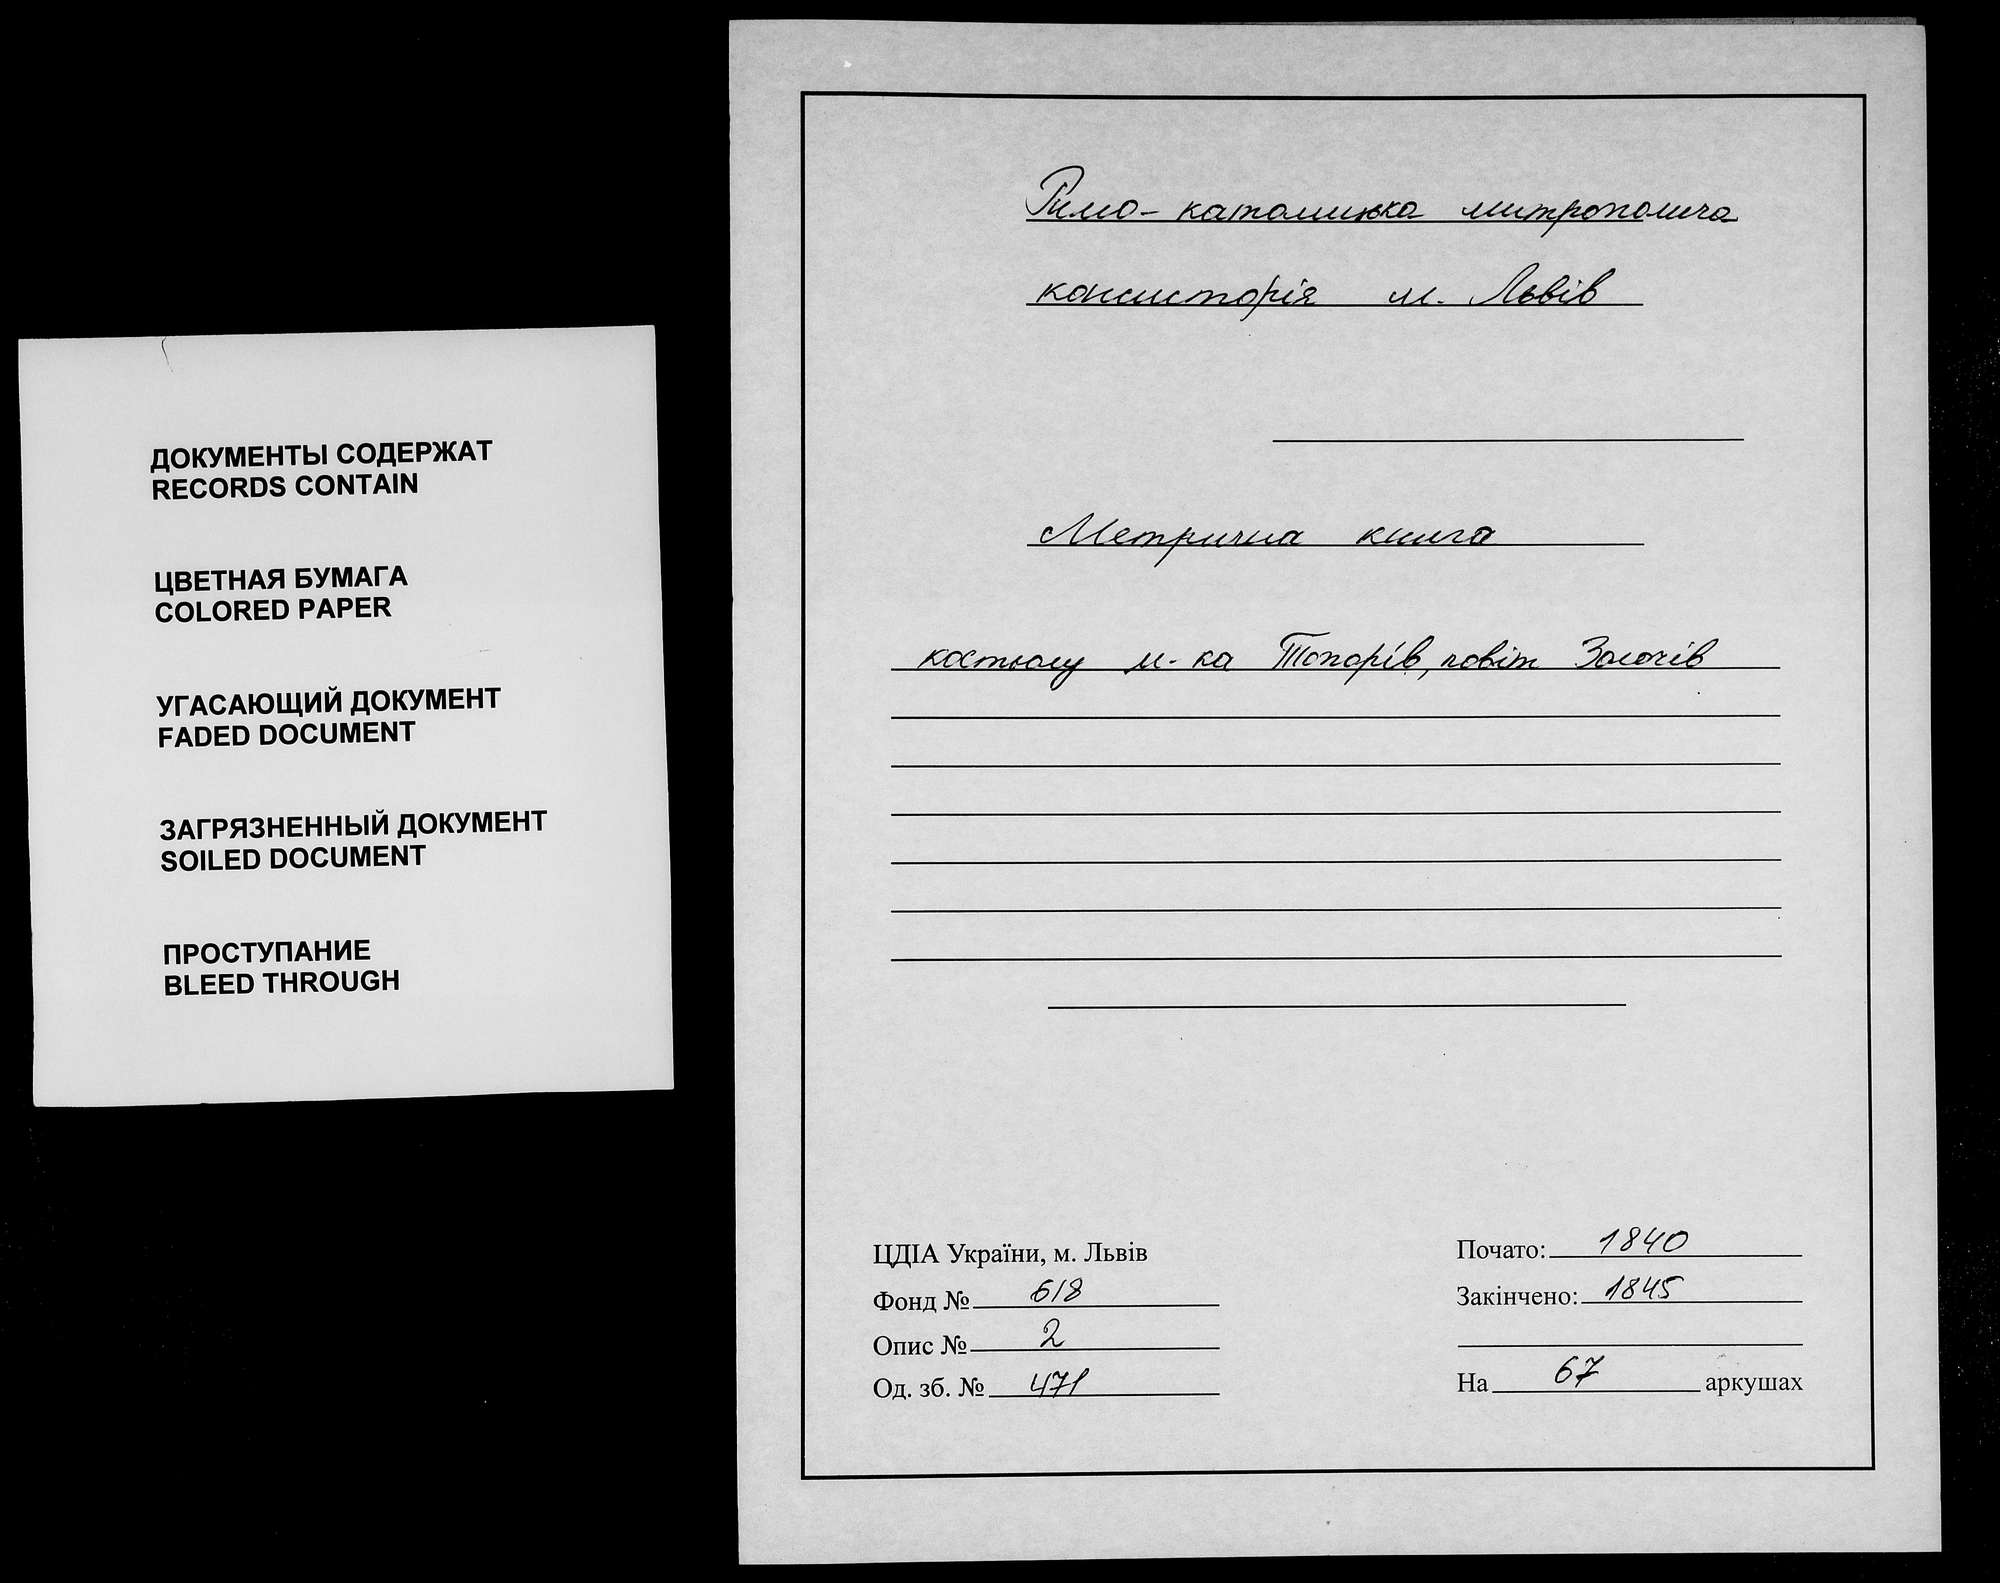 ДОКУМЕНТЫ СОДЕРЖАТ
RECORDS CONTAIN
ЦВЕТНАЯ БУМАГА
COLORED PAPER
УГАСАЮЩИЙ ДОКУМЕНТ
FADED DOCUMENT
ЗАГРЯЗНЕННЫЙ ДОКУМЕНТ
SOILED DOCUMENT
ПРОСТУПАНИЕ
BLEED THROUGH
Римо-католицька митрополича
консисторія м. Львів
Метрична книга
костьолу м-ка Топорів, повіт Золочів
ЦДІА України, м. Львів
Фонд № 618
Опис № 2
Од. зб. № 471
Почато: 1840
Закінчено: 1845
На 67 аркушах